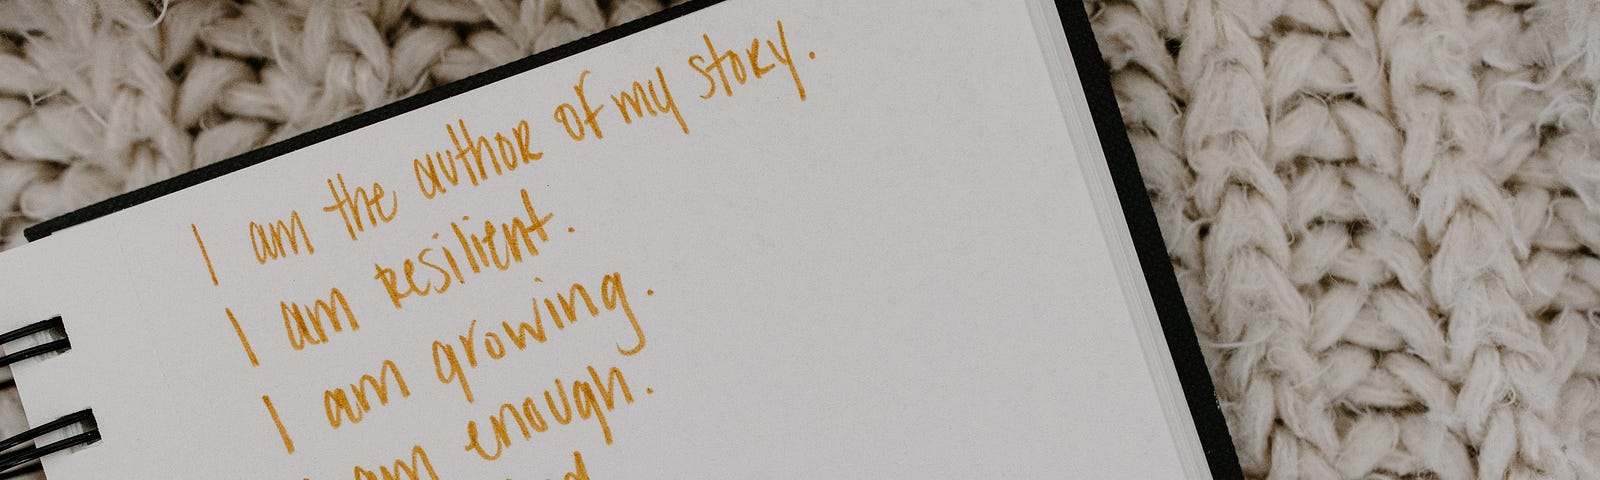 I am the author of my story.
I am resilient.
I am growing.
I am enough.